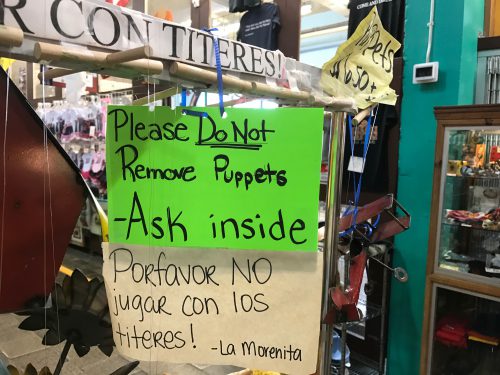 R CON TITERES!
Puppets
Please Do Not
Remove Puppets
-Ask inside
Porfavor NO
jugar con los
titeres!
-La Morenita